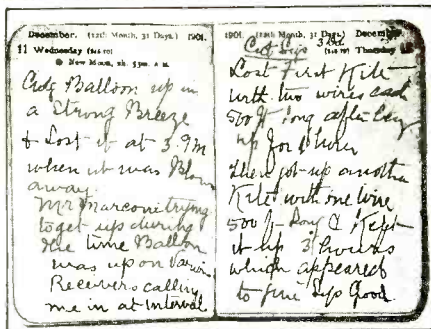 December. (12th Month, 31 Days.) 1901.
11 Wednesday
New Moon, 2h. 53m. a.m.
Balloon up in
a Strong Breeze
& Lost it at 3 PM
when it was Blown
away
Mr Marconi trying
to get sigs during
the time Balloon
was up on various
Receivers calling
me in at Interval
1901. (12th Month, 31 Days.) December.
Got Sigs
Thursday 12
Lost First Kite
with two wires each
500 ft long after being
up for 1 hour
then got up another
Kite with one wire
500 ft long & Kept
it up 3 hours
which appeared
to give Sigs Good